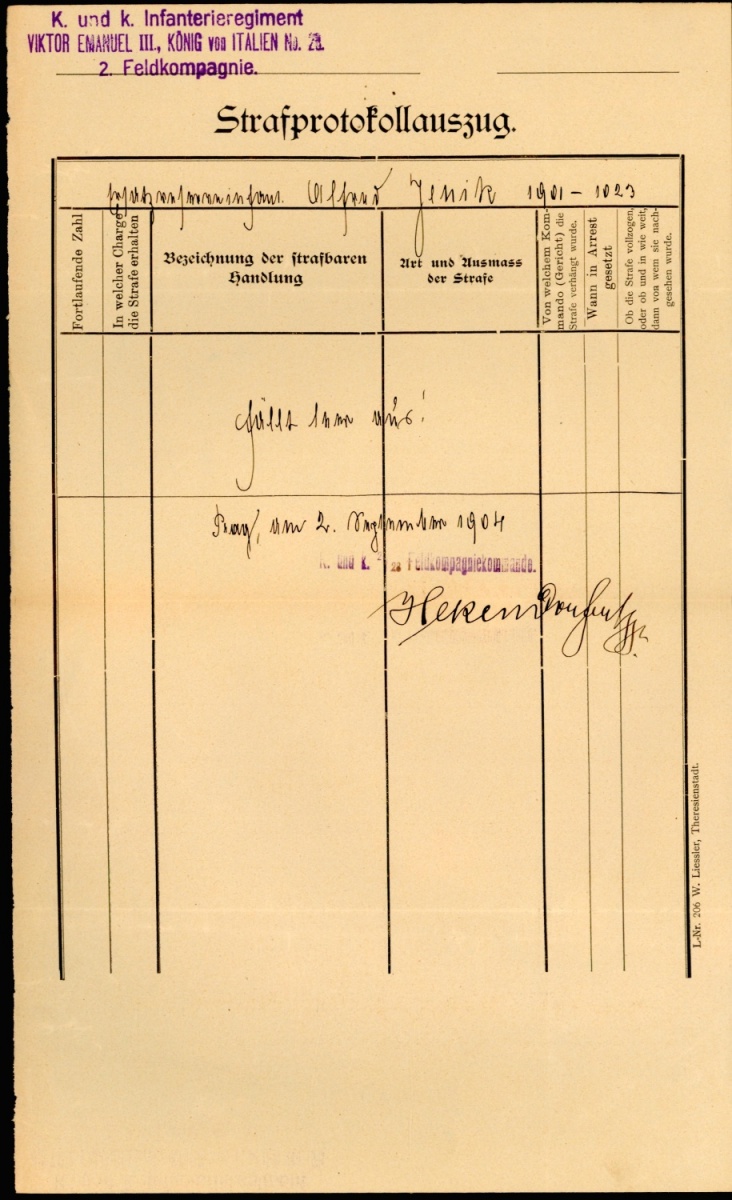 K. und k. Infanterieregiment
VIKTOR EMANUEL III., KÖNIG von ITALIEN No. 28.
2. Feldkompagnie.
Strafprotokollauszug.
Alfred Jenik 1901 – 1023
Fortlaufende Zahl
In welcher Charge die Strafe erhalten
Bezeichnung der strafbaren
Handlung
Art und Ausmass
der Strafe
Von welchem Kom-
mando (Gericht) die
Strafe verhängt wurde.
Wann in Arrest
gesetzt
Ob die Strafe vollzogen,
oder ob und in wie weit,
dann von wem sie nach-
gesehen wurde.
Fällt leer aus!
Prag, am 2. September 1904
K. und k. Feldkompagniekommando.
L.-Nr. 206 W. Liessler, Theresienstadt.